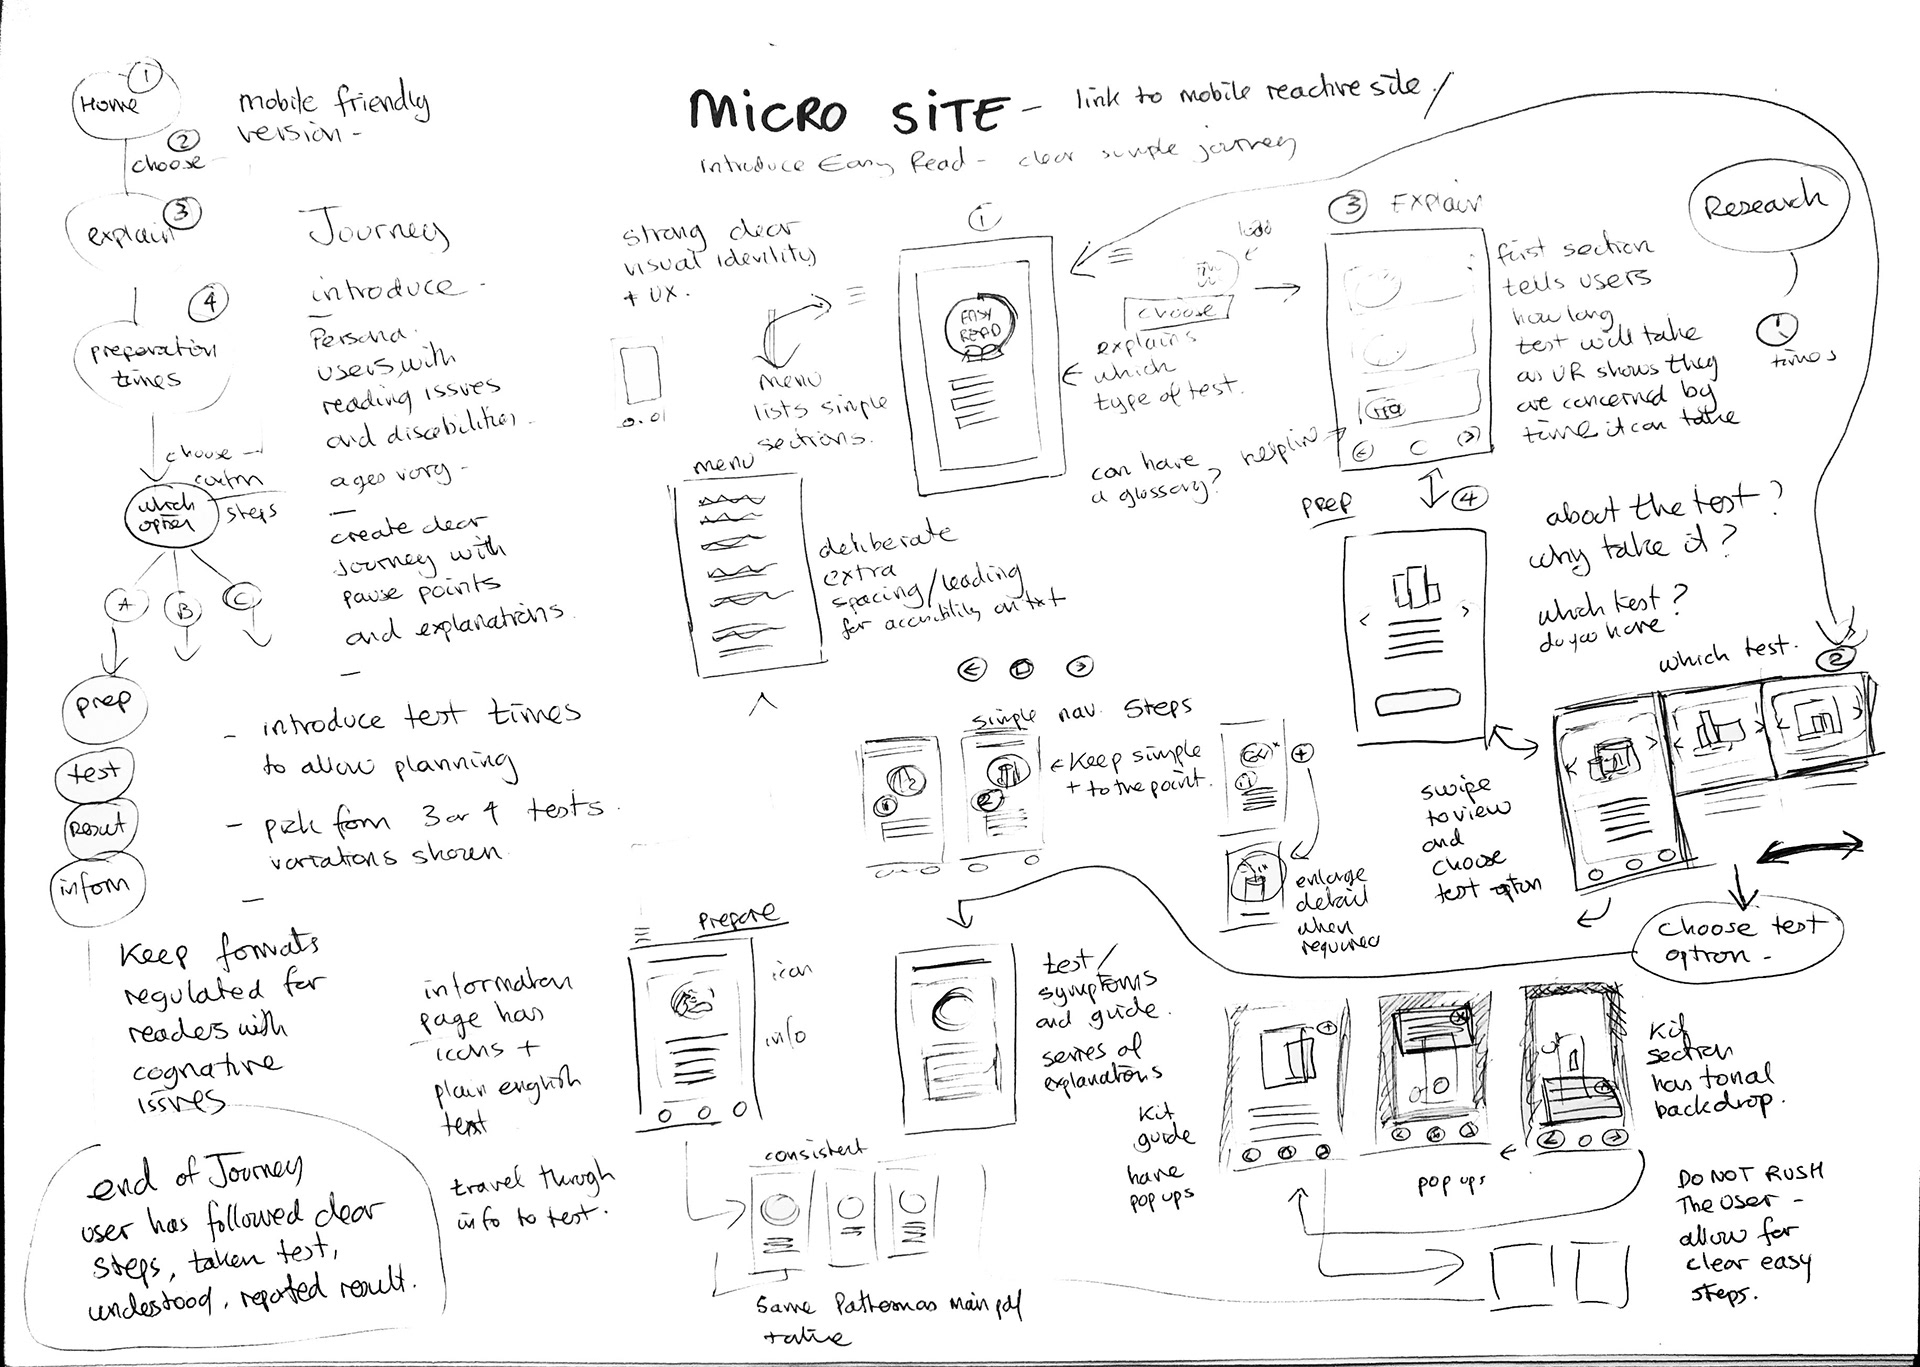 MICRO SITE - link to mobile reactive site /
introduce Easy Read - clear simple journey
1
Home
mobile friendly
version -
2
choose -
3
explain
4
preparation
times
choose -
steps
which
option
A
B
C
prep
test
result
inform
Journey
introduce -
Persona
users with
reading issues
and disabilities.
ages vary -
create clear
journey with
pause points
and explanations.
- introduce test times
to allow planning
- pick from 3 or 4 tests.
variations shown.
Keep formats
regulated for
readers with
cognative
issues
end of Journey
user has followed clear
steps, taken test,
understood, reported result.
strong clear
visual idenility
+ UX.
menu
lists simple
sections.
menu
deliberate
extra
spacing/leading
for accessibility on txt
1
EASY
READ
choose
explains
which
type of test.
can have
a glossary?
3 EXPLAIN
first section
tells users
how long
test will take
as UR shows they
are concerned by
time it can take
Research
1
times
PREP
4
about the test?
why take it?
which test?
do you have
which test.
2
swipe
to view
and
choose
test option
choose test
option -
simple nav. steps
1
2
← Keep simple
+ to the point.
enlarge
detail
when
required
prepare
icon
info
information
page has
icons +
plain english
text
travel through
info to test.
consistent
same Pattern as main pdf
test/
symptoms
and guide.
series of
explanations
Kit
guide
have
pop ups
pop ups
Kit
section
has tonal
backdrop.
DO NOT RUSH
THE USER -
allow for
clear easy
steps.